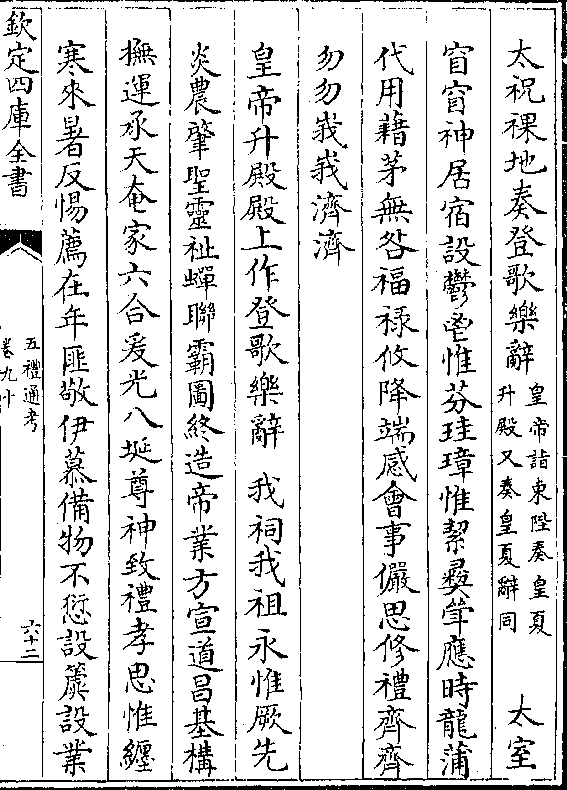 太祝祼地奏登歌樂辭 皇帝詣東陛奏皇夏
升殿又奏皇夏辭同 太室
窅窅神居宿設鬱鬯惟芬珪璋惟絜彞斝應時龍蒲
代用藉茅無咎福祿攸降端感會事儼思修禮齊齊
勿勿峩峩濟濟
皇帝升殿殿上作登歌樂辭 我祠我祖永惟厥先
炎農肇聖靈祉蟬聯霸圖終造帝業方宣道昌基構
撫運承天奄家六合爰光八埏尊神致禮孝思惟纏
寒來暑反惕薦在年匪敬伊慕備物不愆設簴設業
欽定四庫全書
五禮通考
卷九十
六十二